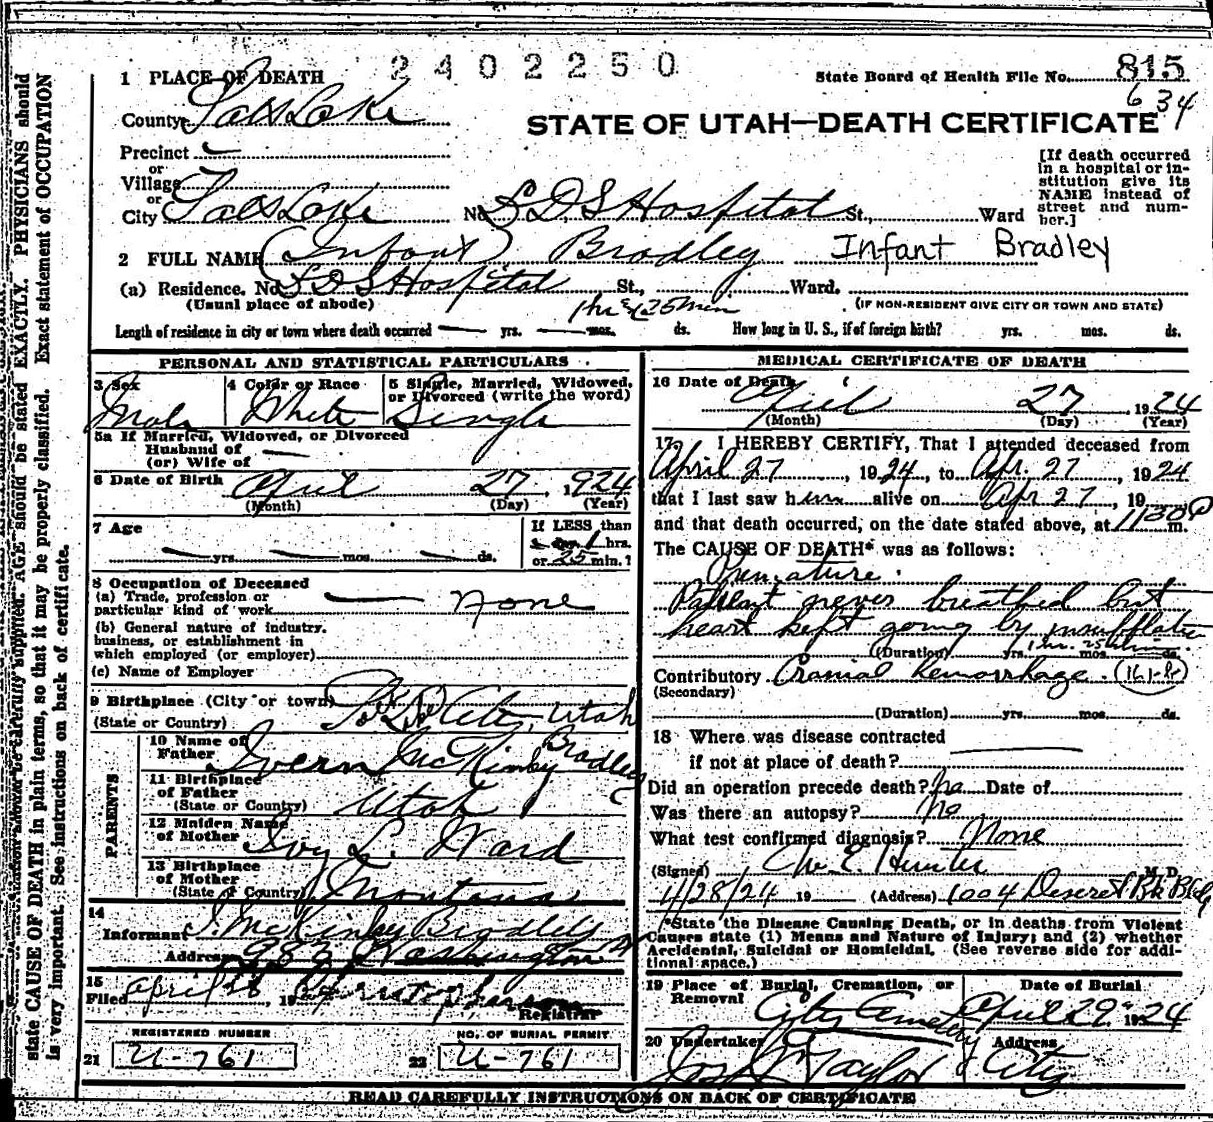 2402250
1 PLACE OF DEATH
State Board of Health File No. 815
634
County Salt Lake
STATE OF UTAH—DEATH CERTIFICATE
Precinct
or
Village
or
City Salt Lake No. L.D.S Hospital St., Ward
[If death occurred
in a hospital or in-
stitution give its
NAME instead of
street and num-
ber.]
2 FULL NAME (Infant) Bradley Infant Bradley
(a) Residence. No. L D S Hospital St., Ward.
(Usual place of abode) (IF NON-RESIDENT GIVE CITY OR TOWN AND STATE)
1 hr & 25 min
Length of residence in city or town where death occurred — yrs. — mos. ds. How long in U. S., if of foreign birth? yrs. mos. ds.
PERSONAL AND STATISTICAL PARTICULARS
3 Sex 4 Color or Race 5 Single, Married, Widowed,
or Divorced (write the word)
Male White Single
5a If Married, Widowed, or Divorced
Husband of
(or) Wife of —
6 Date of Birth April 27, 1924
(Month) (Day) (Year)
7 Age If LESS than
1 day, 1 hrs.
— yrs. — mos. — ds. or 25 min. ?
8 Occupation of Deceased
(a) Trade, profession or
particular kind of work — none
(b) General nature of industry,
business, or establishment in
which employed (or employer)
(c) Name of Employer
9 Birthplace (City or town)
(State or Country) Utah
PARENTS
10 Name of
Father McKinby Bradley
11 Birthplace
of Father
(State or Country) Utah
12 Maiden Name
of Mother Ivy L. Ward
13 Birthplace
of Mother
(State or Country) Montana
14
Informant I. McKinby Bradley
Address Washington
15
Filed April 28, 19
Registrar
REGISTERED NUMBER NO. OF BURIAL PERMIT
21 U-761 22 U-761
MEDICAL CERTIFICATE OF DEATH
16 Date of Death
April 27, 1924
(Month) (Day) (Year)
17 I HEREBY CERTIFY, That I attended deceased from
April 27, 1924, to Apr. 27, 1924
that I last saw him alive on Apr 27, 19
and that death occurred, on the date stated above, at 1130P m.
The CAUSE OF DEATH* was as follows:
Premature.
Patient never breathed but
heart kept going by insufflation
(Duration) yrs. 1 hr. 25 min. mos. ds.
Contributory Cranial hemorrhage. (161-b)
(Secondary)
(Duration) yrs. mos. ds.
18 Where was disease contracted
if not at place of death?
Did an operation precede death? no Date of
Was there an autopsy? no
What test confirmed diagnosis? None
(Signed) E. Hunter M. D.
4/28/24 19 (Address) 1004 Deseret Bk Bldg
*State the Disease Causing Death, or in deaths from Violent
Causes state (1) Means and Nature of Injury; and (2) whether
Accidental, Suicidal or Homicidal. (See reverse side for addi-
tional space.)
19 Place of Burial, Cremation, or
Removal Date of Burial
City Cemetery April 29 1924
20 Undertaker Address
Jos Wm Taylor City
READ CAREFULLY INSTRUCTIONS ON BACK OF CERTIFICATE
AGE should be stated EXACTLY. PHYSICIANS should
state CAUSE OF DEATH in plain terms, so that it may be properly classified. Exact statement of OCCUPATION
is very important. See instructions on back of certificate.